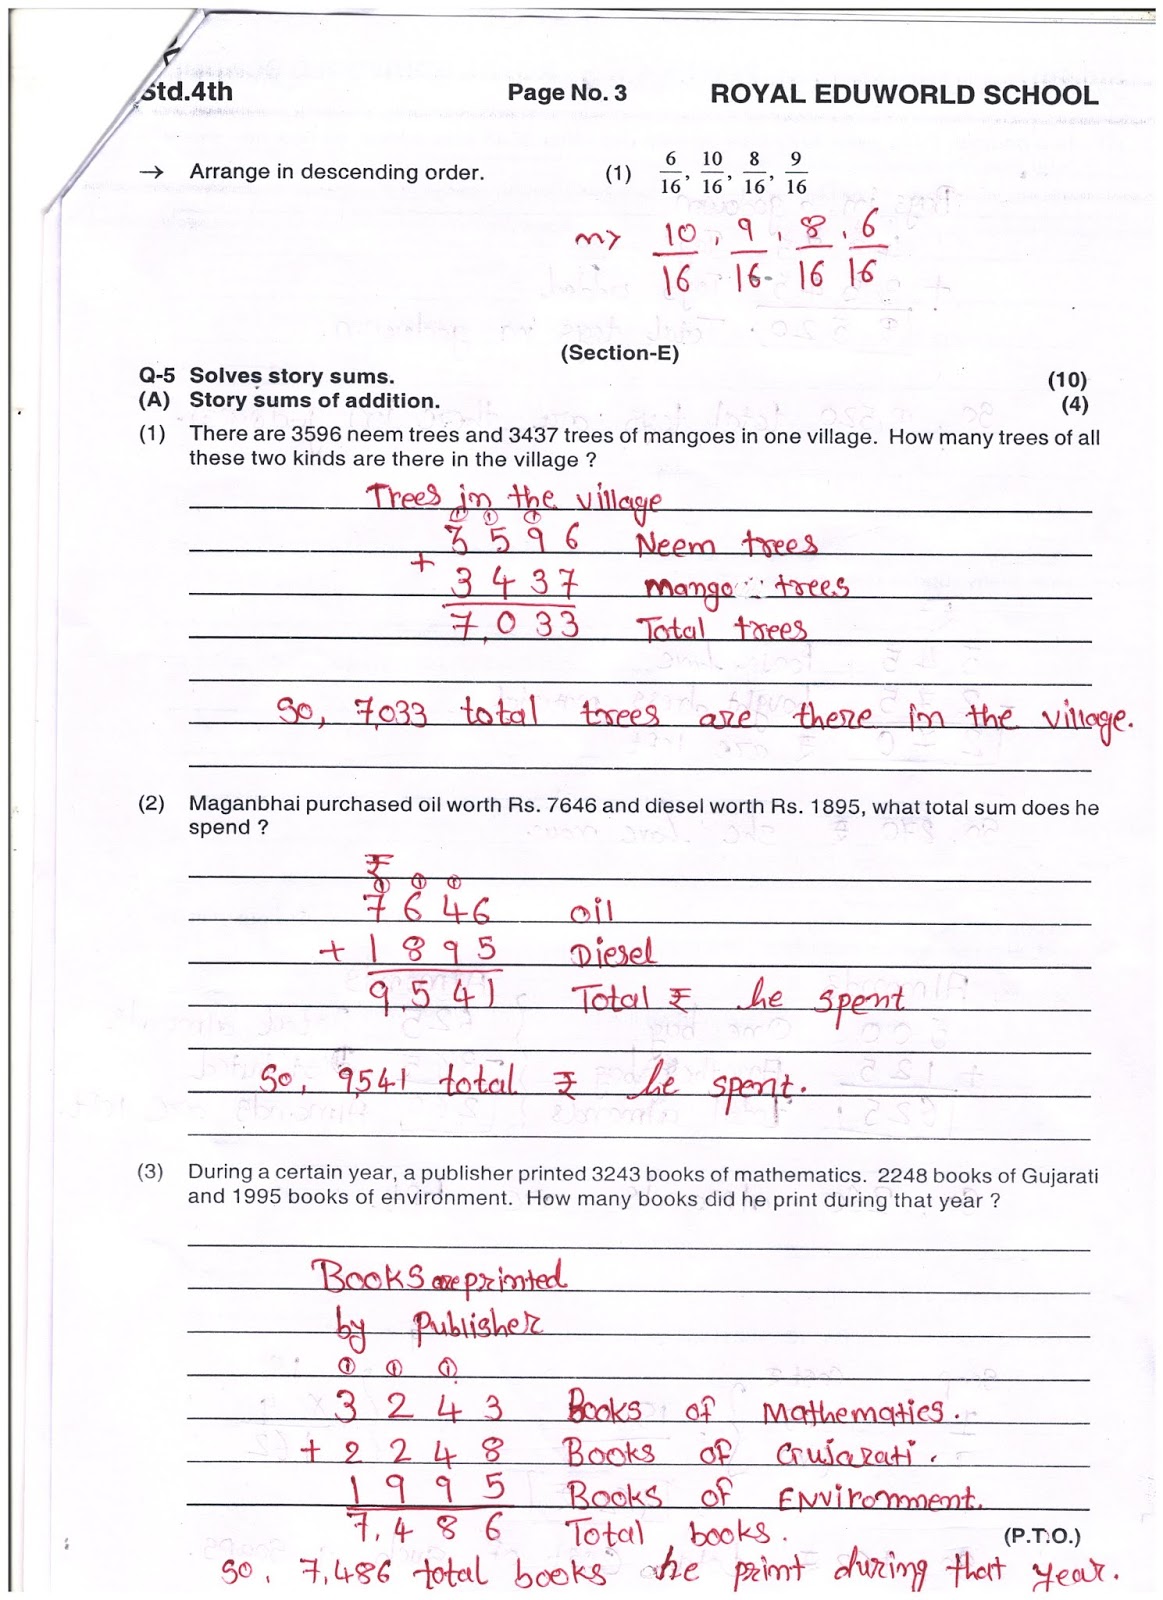 Std.4th Page No. 3 ROYAL EDUWORLD SCHOOL
→ Arrange in descending order. (1) 6/16, 10/16, 8/16, 9/16
⇒ 10/16, 9/16, 8/16, 6/16
(Section-E)
Q-5 Solves story sums. (10)
(A) Story sums of addition. (4)
(1) There are 3596 neem trees and 3437 trees of mangoes in one village. How many trees of all
these two kinds are there in the village ?
Trees in the village
1 1 1
3 5 9 6 Neem trees
+ 3 4 3 7 Mango trees
7,0 3 3 Total trees
So, 7,033 total trees are there in the village.
(2) Maganbhai purchased oil worth Rs. 7646 and diesel worth Rs. 1895, what total sum does he
spend ?
₹
1 1 1
7 6 4 6 oil
+ 1 8 9 5 Diesel
9,5 4 1 Total ₹ he spent
So, 9,541 total ₹ he spent.
(3) During a certain year, a publisher printed 3243 books of mathematics. 2248 books of Gujarati
and 1995 books of environment. How many books did he print during that year ?
Books are printed
by Publisher
1 1 1
3 2 4 3 Books of Mathematics.
+ 2 2 4 8 Books of Gujarati.
1 9 9 5 Books of Environment.
7,4 8 6 Total books.
(P.T.O.)
So, 7,486 total books he print during that year.